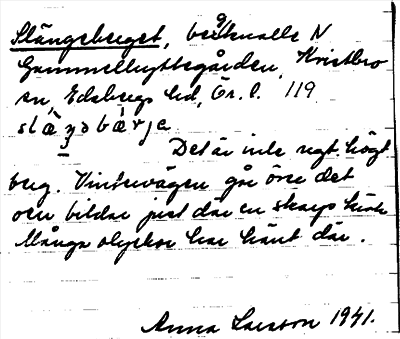 Slängeberget, bergknalle N
Gammelhyttegården, Kristbro
sn, Edsbergs hd, Ör. l. 119
slæ̀ŋəbæ̀rjə
Det är inte ngt högt
berg. Vintervägen går över det
och bildar just där en skarp krök
Många olyckor har hänt där.
Anna Larsson 1941.